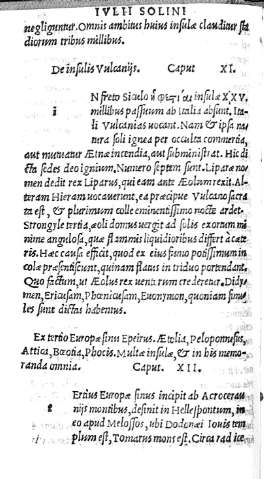 IVLII SOLINI
negliguntur. Omnis ambitus huius insulæ clauditur sta
diorum tribus millibus.
De insulis Vulcanijs. Caput XI.
i N freto Siculo insulæ XXV.
millibus passuum ab Italia absunt, Ita
li Vulcanias uocant. Nam & ipsa na
tura soli ignea per occulta commertia,
aut mutuatur Ætnæ incendia, aut subministrat. Hic di
cta sedes deo ignium, Numero septem sunt. Liparæ no
men dedit rex Liparus, qui eam ante Æolum rexit. Al
teram Hieram uocauerunt, ea præcipue Vulcano sacra
ta est, & plurimum colle eminentissimo nocte ardet.
Strongyle tertia, æoli domus uergit ad solis exortum mi
nime angulosa, quæ flammis liquidioribus differt à cæte
ris. Hæc causa efficit, quod ex eius fumo potissimum in
colæ præsentiscunt, quinam flatus in triduo portendant.
Quo factum, ut Æolus rex uentorum crederetur. Didy
men, Ericusam, Phœnicusam, Euonymon, quoniam simi
les sunt dictas habentus.
Ex tertio Europæ sinu Epeirus. Ætolia, Peloponnesus,
Attica, Bœotia, Phocis. Multæ insulæ, & in his memo
randa omnia. Caput XII.
t Ertius Europæ sinus incipit ab Acrocerau
nijs montibus, desinit in Hellespontum, in
eo apud Molossos, ubi Dodonæi Iouis tem
plum est, Tomarus mons est. Circa radice